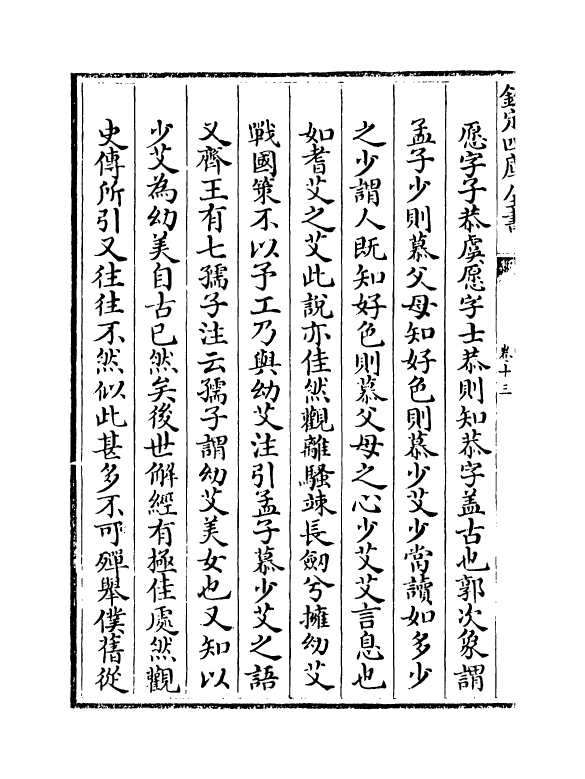 欽定四庫全書
卷十三
愿字子恭虞愿字士恭則知恭字盖古也郭次象謂
孟子少則慕父母知好色則慕少艾少當讀如多少
之少謂人既知好色則慕父母之心少艾艾言息也
如耆艾之艾此說亦佳然觀離騷竦長劒兮擁幼艾
戰國策不以予工乃與幼艾注引孟子慕少艾之語
又齊王有七孺子注云孺子謂幼艾美女也又知以
少艾為幼美自古已然矣後世解經有極佳處然觀
史傳所引又往往不然似此甚多不可殫舉僕舊從